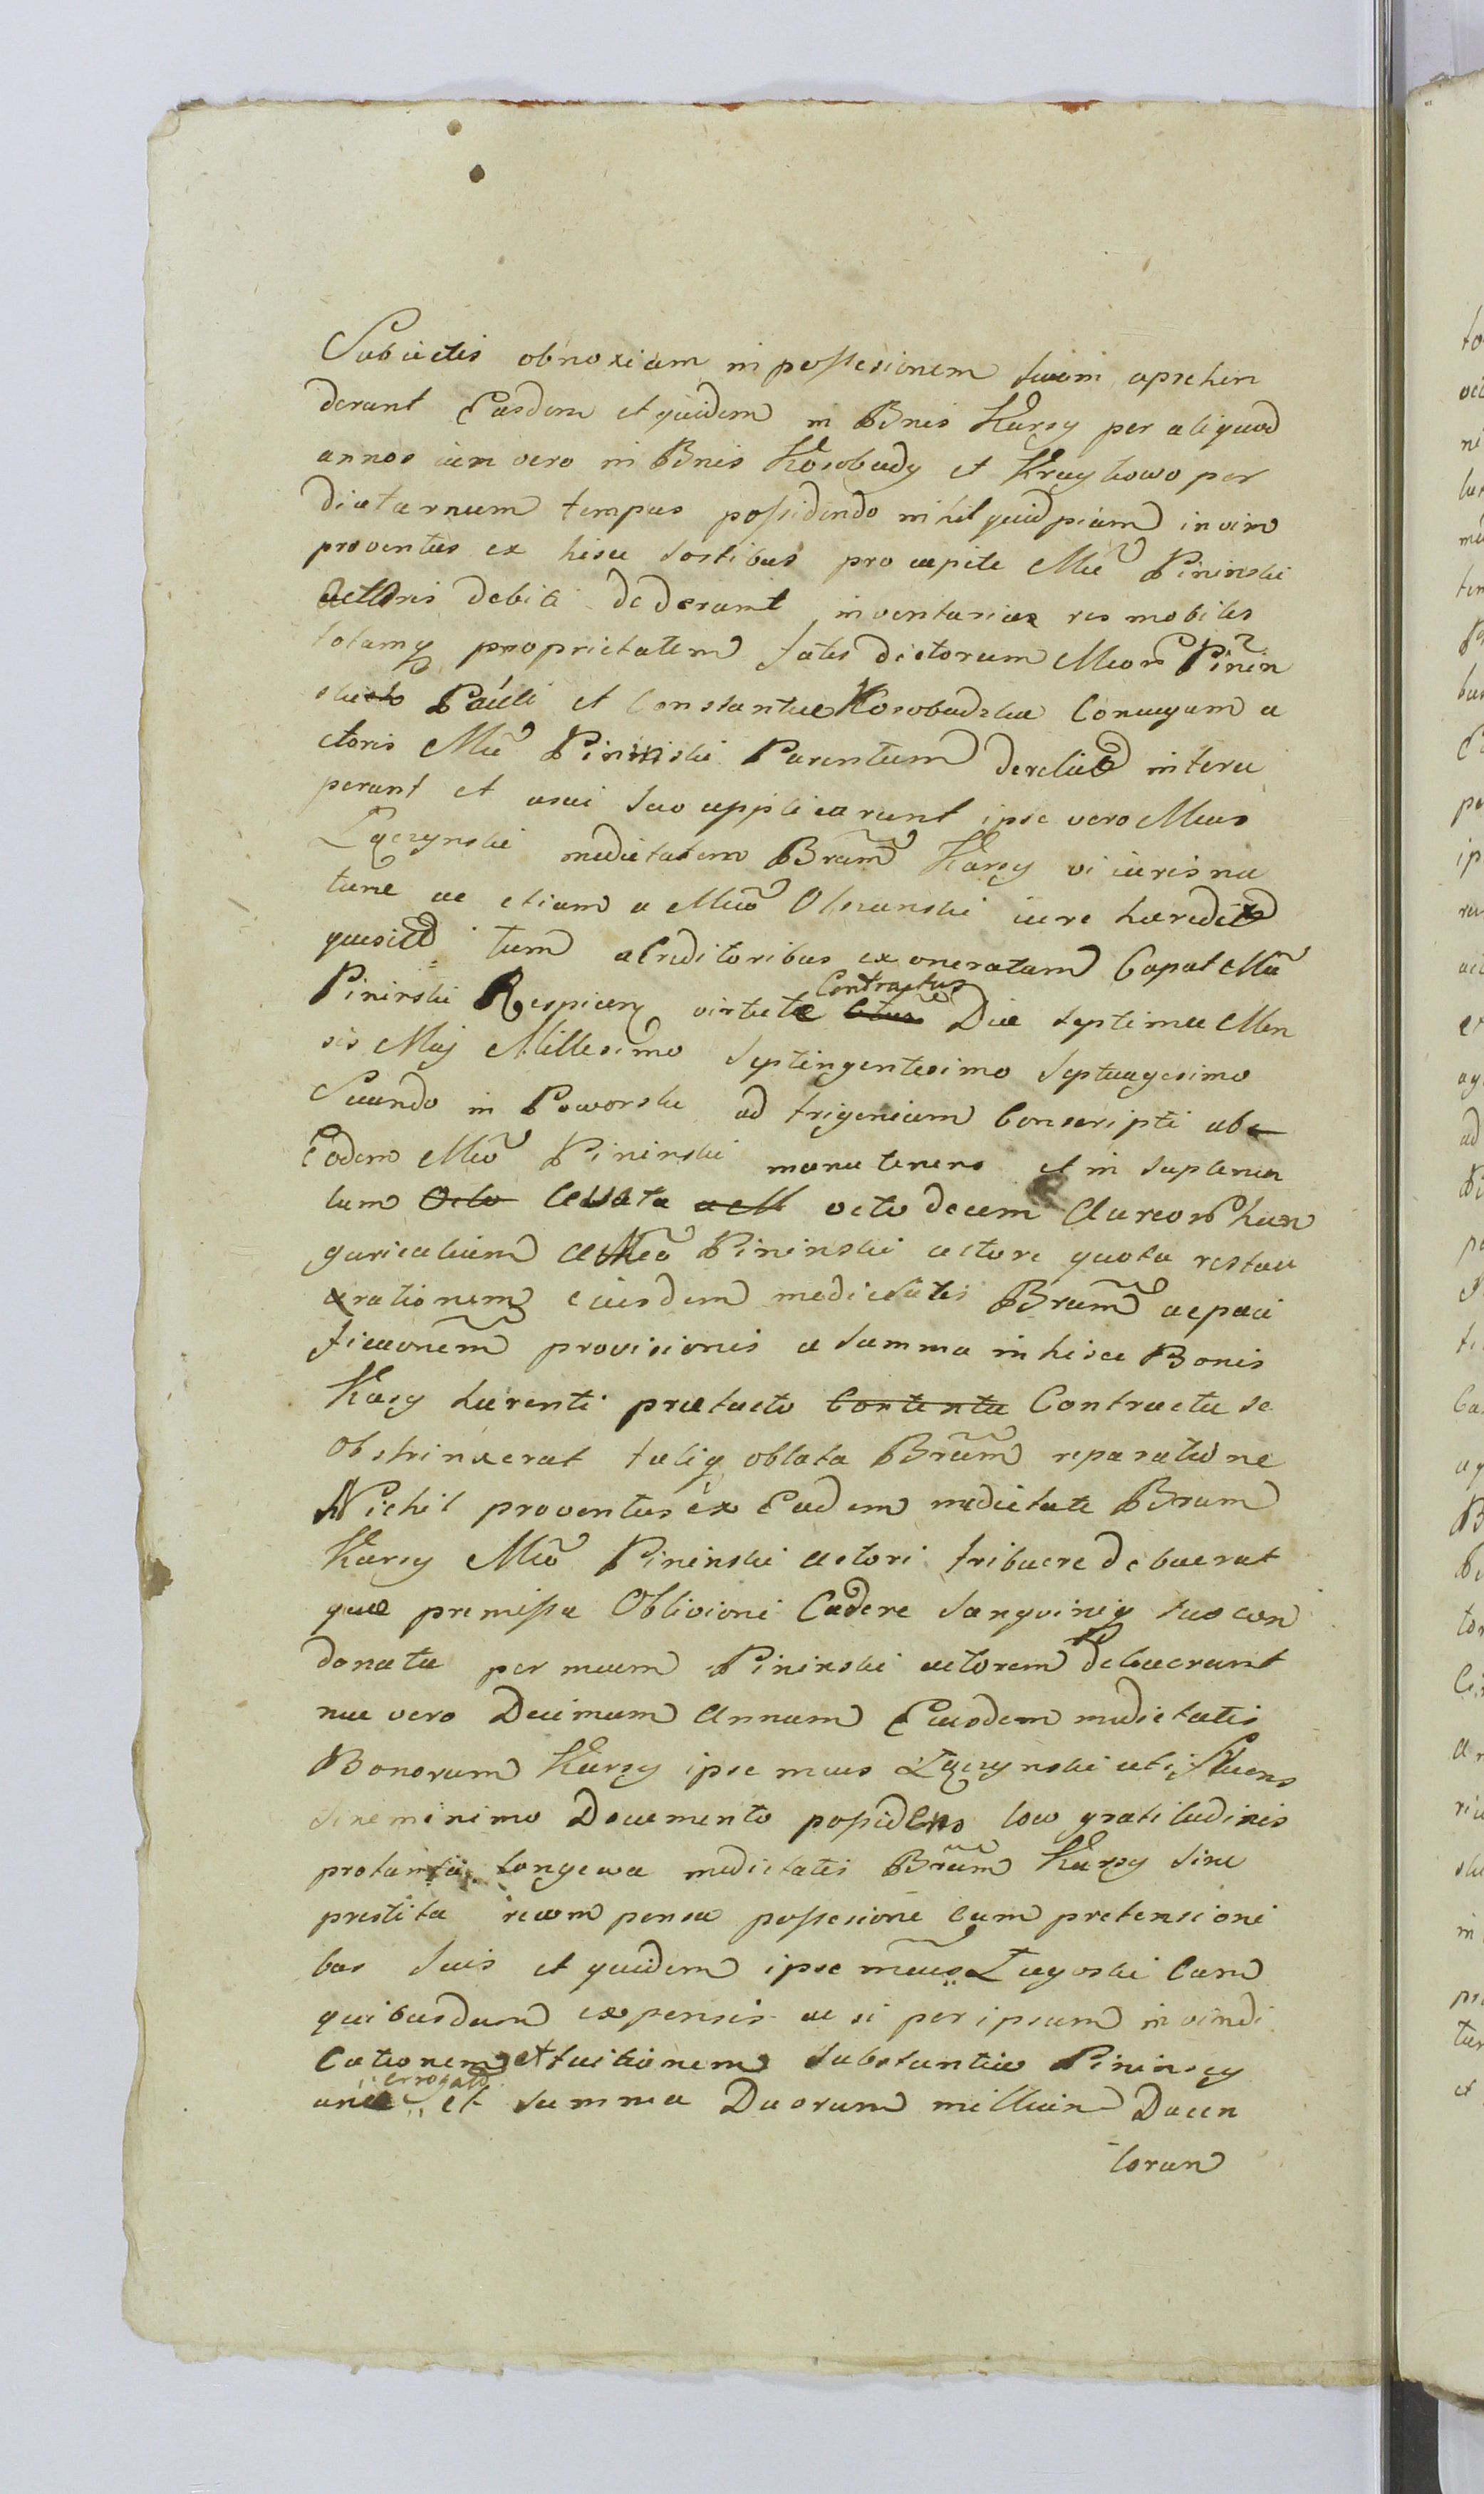 Subiectis obnoxiam in possesionem suam aprehen
derant Easdem et quidem in Bnis Karsy per aliquod
annos iam vero in Bnis Kosobudy et Kraykowo per
diuturnum tempus possidendo nihil quidpiam in vim
proventus ex hisce sortibus pro capite Mci Pininski
actoris debiti dederant inventarias res mobiles
totamq proprietatem satis dictorum Mcor Pinin
Pauli et Constantiae Kosobudzka Coniugum a
ctoris Mci Pininski Parentum derelict interce
perant et usui suo applicarunt ipse vero Mcus
Łączynski medietatem Brum Karsy vi iuris na
tune ac etiam a Mco Olszanski iure haeredit
quesit tum a Creditoribus exoneratam Caput Mci
Pininski Respicien virtute Contractus Die septima Men
sis Maj Millesimo Septingentesimo Septuagesimo
Secundo in Poworsk ad trigenium Conscripti ab
Eodem Mco Pininski manutenens et in suplemen
tum Octo octodecem Aureor hun
garicalium a Mco Pininski actore quota restau
rationem eiusdem medietatis Brum ac paci
ficaonem provisionis a summa in hisce Bonis
Karsy haerenti praetacto Contenta Contractu se
obstrinxerat taliq oblata Brum reparatione
Nichil proventus ex Eadem medietate Brum
Karsy Mco Pininski actori tribuere debuerat
quae premissa Oblivioni Cadere sanguiniq suo con
donata per mcum Pininski actorem debuerant
nae vero Decimum Annum Eiusdem medietatis
Bonorum Karsy ipse mcus Łączynski uti fruens
sine minimo Documento possidens loco gratitudinis
pro tanta longeva medietatis Brum Karsy sine
prestita recompensa possesione cum pretensioni
bus suis et quidem ipse mcus Cum
quibusdam expensis ac si per ipsum in vindi
cationem et tuitionem substantiae Pininscy
erogatis
et summa Duorum millium Ducen
torum